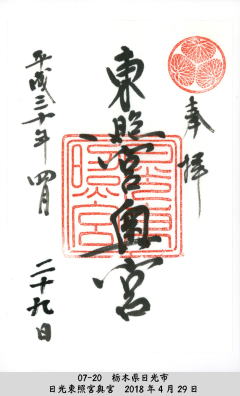 奉拝
東照宮奥宮
平成三十年四月
二十九日
07-20 栃木県日光市
日光東照宮奥宮 2018年4月29日